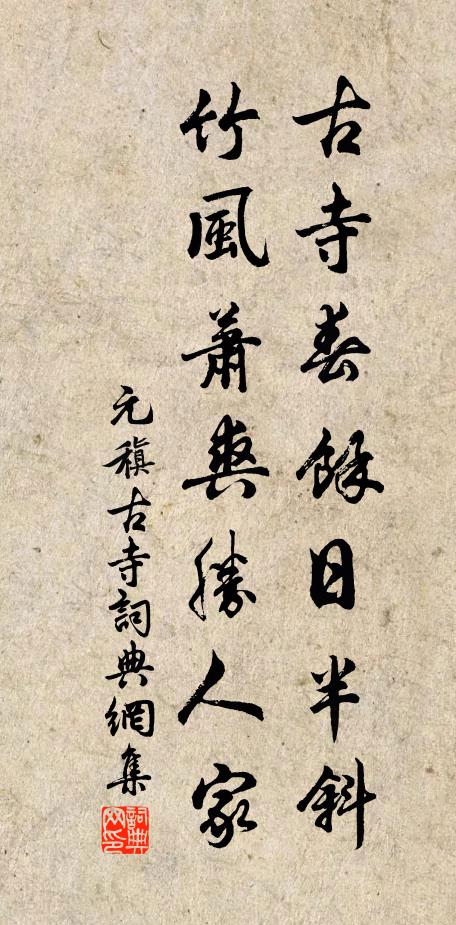 古寺春餘日半斜
竹風蕭爽勝人家
元稹古寺詞典網集
詞典網印